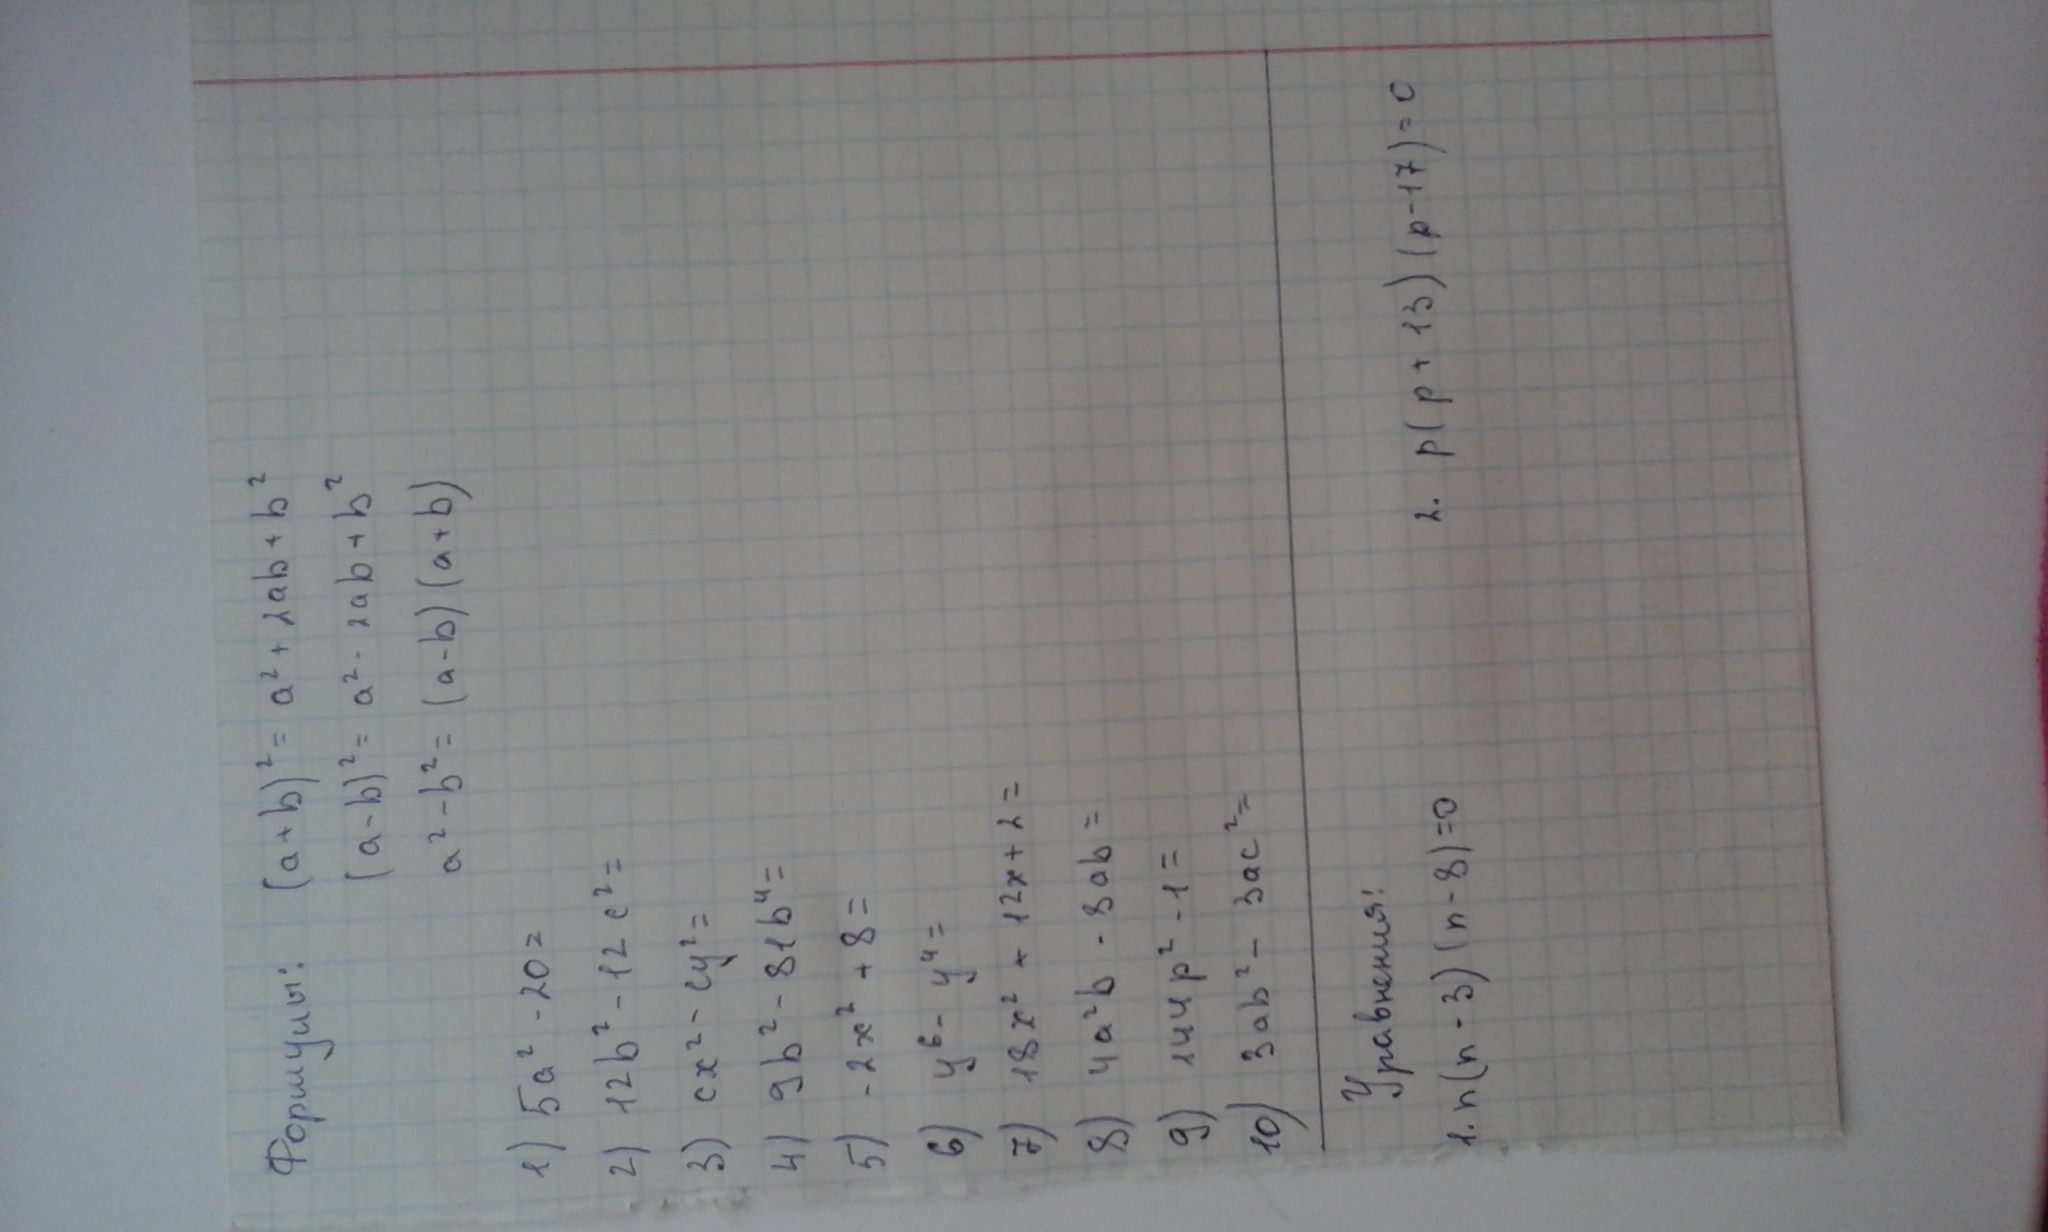 Формулы: (a+b)² = a² + 2ab + b²
(a-b)² = a² - 2ab + b²
a² - b² = (a-b)(a+b)
1) 5a² - 20 =
2) 12b² - 12c² =
3) cx² - cy² =
4) 9b² - 81b⁴ =
5) -2x² + 8 =
6) y⁶ - y⁴ =
7) 18x² + 12x + 2 =
8) 4a²b - 8ab =
9) 144p² - 1 =
10) 3ab² - 3ac² =
Уравнения:
1. n(n-3)(n-8)=0 2. p(p+13)(p-17)=0